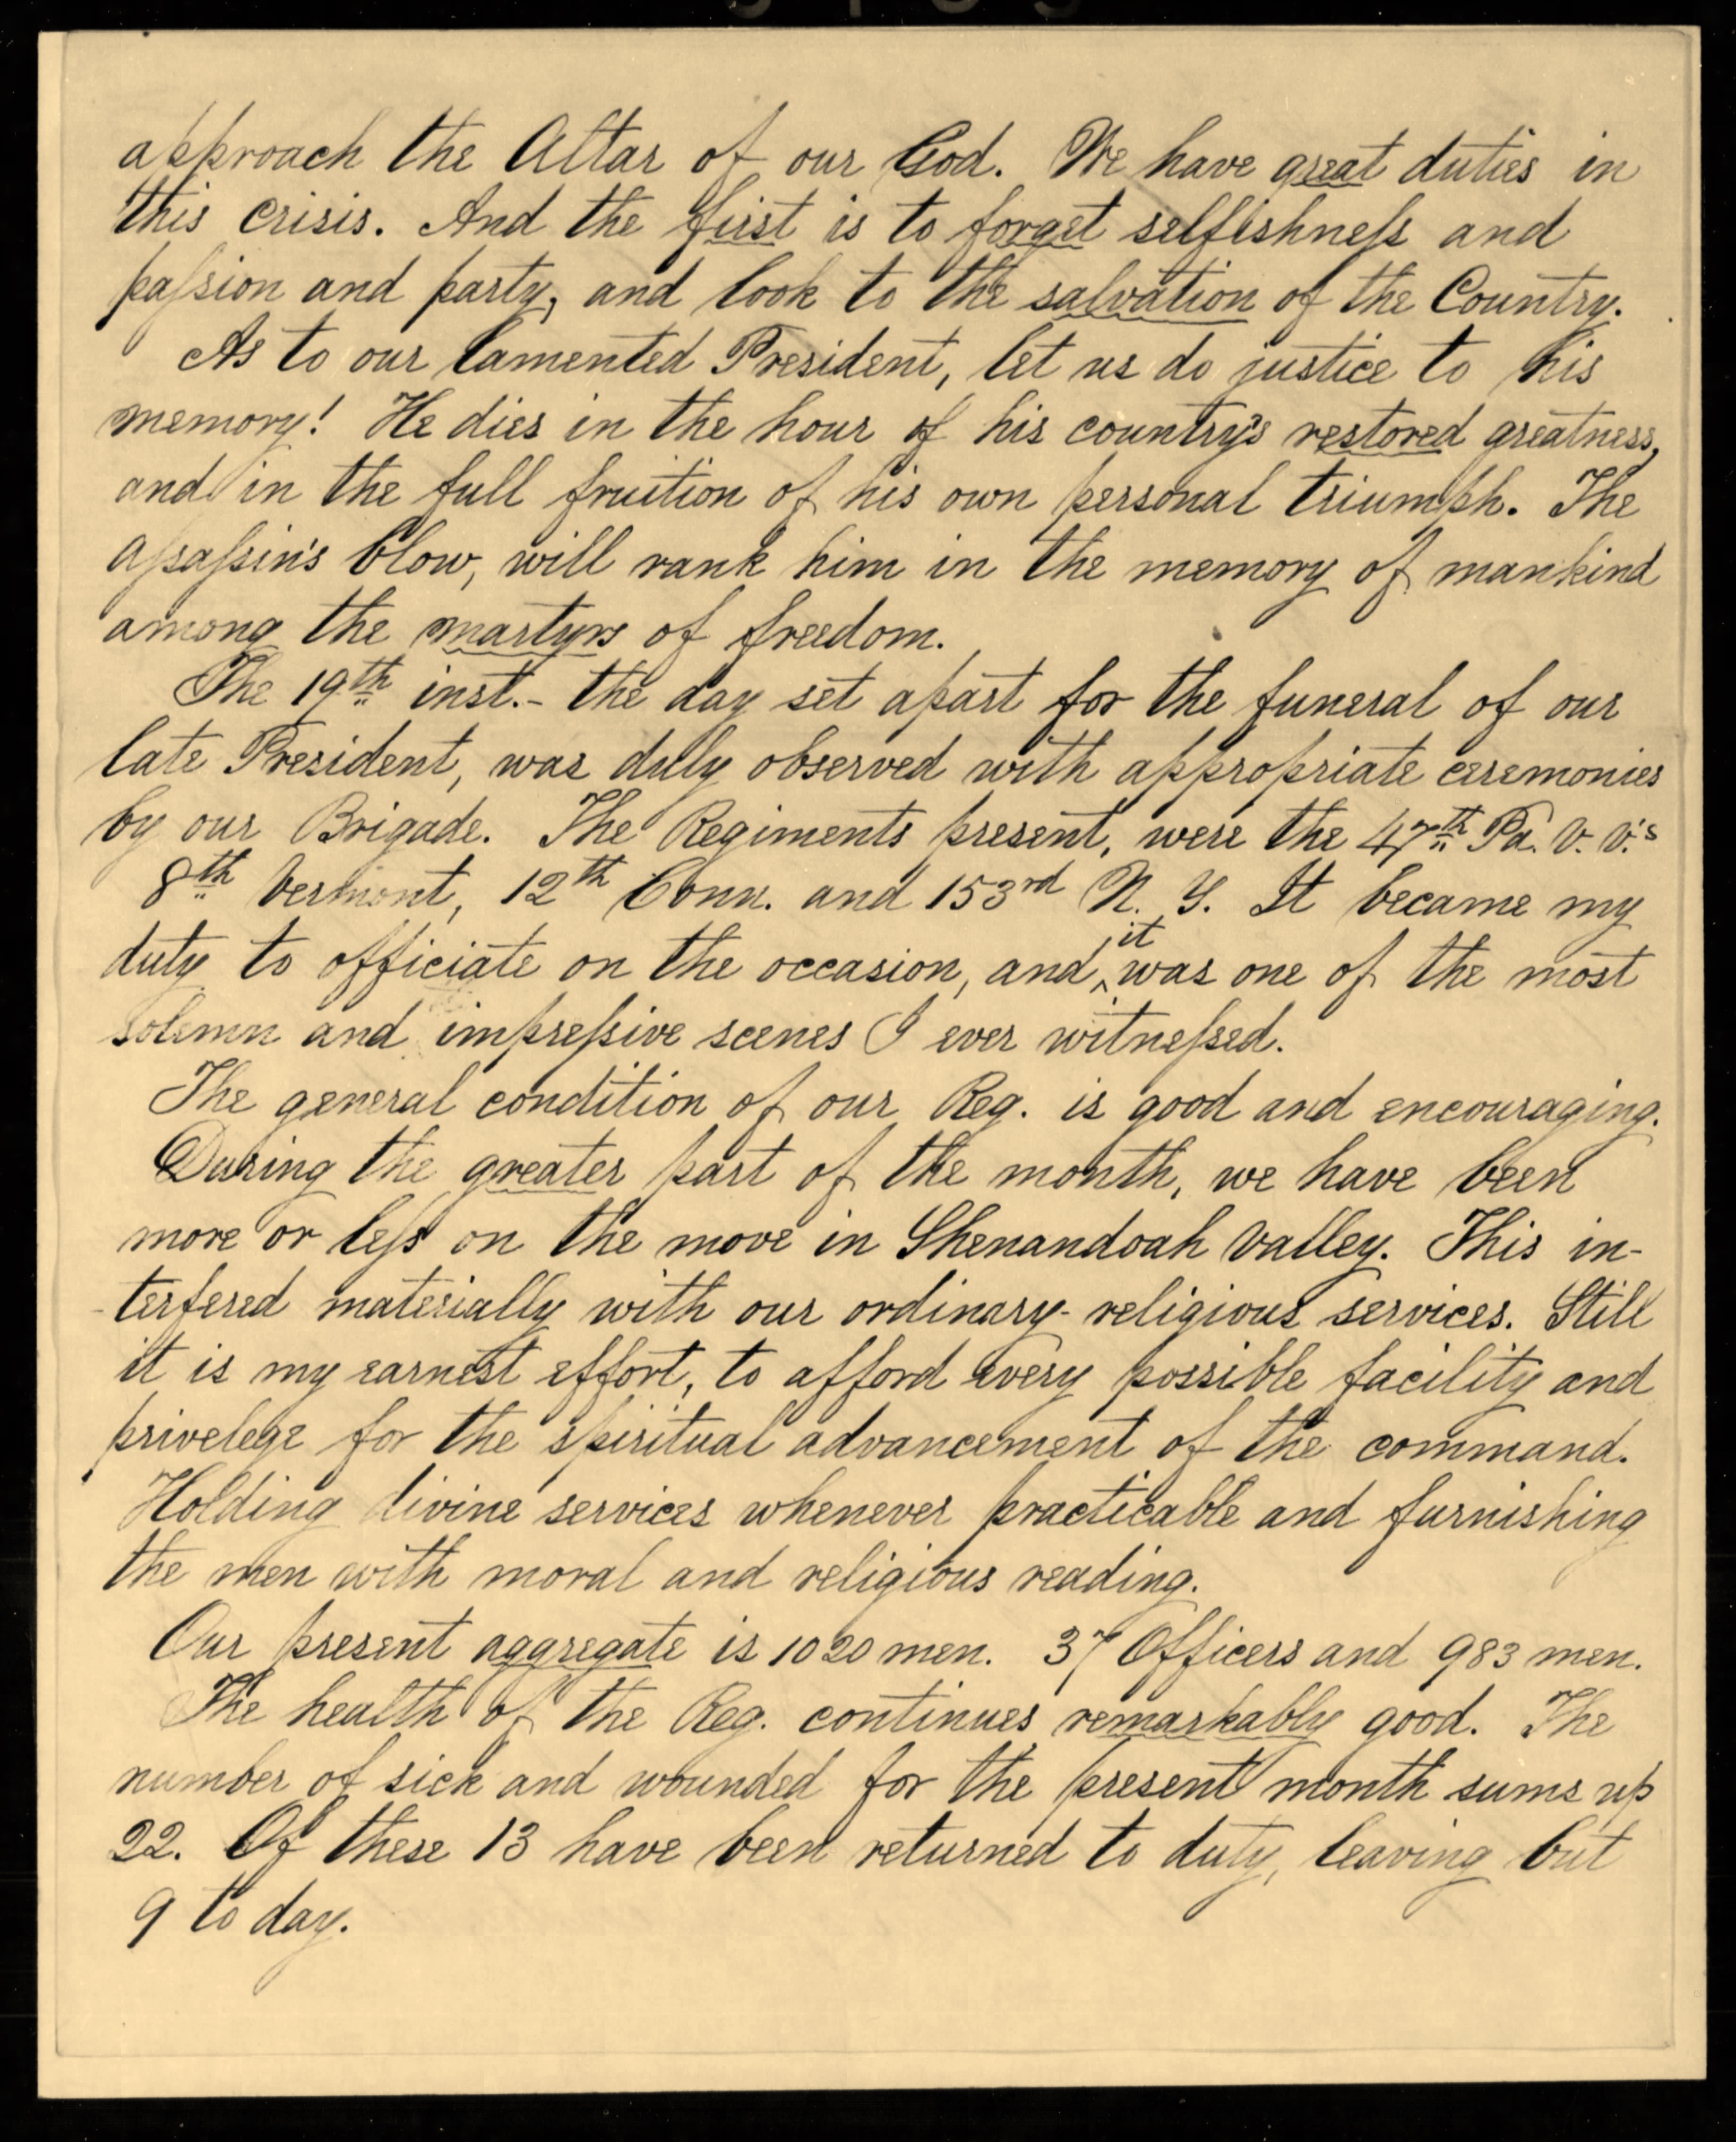 approach the Altar of our God. We have great duties in
this crisis. And the first is to forget selfishneſs and
paſsion and party, and look to the salvation of the Country.
As to our lamented President, let us do justice to his
memory! He dies in the hour of his country's restored greatness,
and in the full fruition of his own personal triumph. The
aſsaſsin's blow, will rank him in the memory of mankind
among the martyrs of freedom.
The 19th inst.- the day set apart for the funeral of our
late President, was duly observed with appropriate ceremonies
by our Brigade. The Regiments present, were the 47th Pa. V. V.'s
8th Vermont, 12th Conn. and 153rd N. Y. It became my
duty to officiate on the occasion, and ‸it was one of the most
solemn and impreſsive scenes I ever witneſsed.
The general condition of our Reg. is good and encouraging.
During the greater part of the month, we have been
more or leſs on the move in Shenandoah Valley. This in-
-terfered materially with our ordinary religious services. Still
it is my earnest effort, to afford every possible facility and
privelege for the spiritual advancement of the command.
Holding divine services whenever practicable and furnishing
the men with moral and religious reading.
Our present aggregate is 1020 men. 37 Officers and 983 men.
The health of the Reg. continues remarkably good. The
number of sick and wounded for the present month sums up
22. Of these 13 have been returned to duty, leaving but
9 to day.